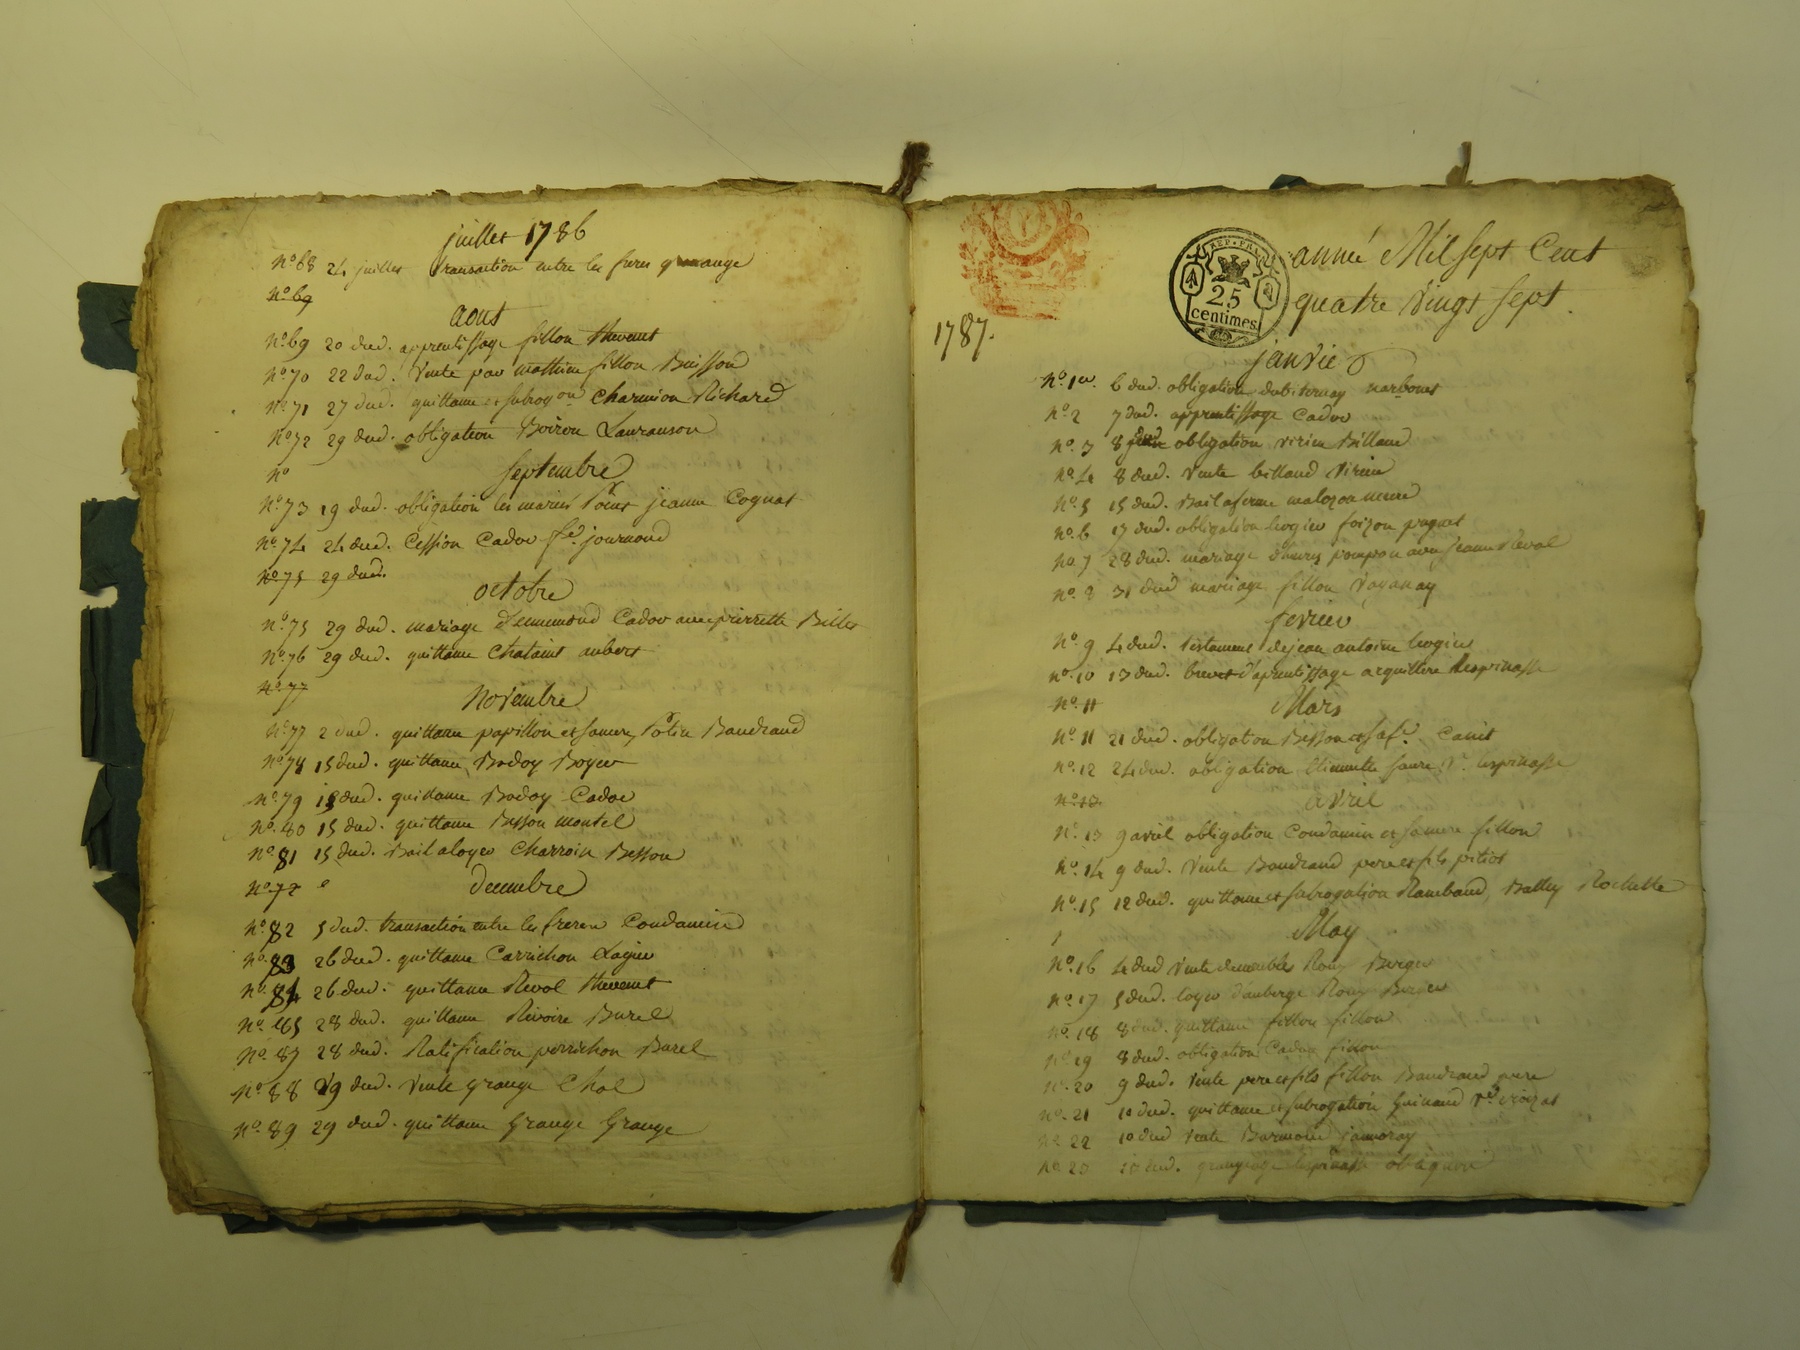 juillet 1786
N° 68 24 juillet transaction entre les freres grange
N° 69
aout
N° 69 20 dud. apprentissage fillon thevenet
N° 70 22 dud. Vente par mathieu fillon Buisson
N° 71 27 dud. quittance et subrog.on Charmion Richard
N° 72 29 dud. obligation Boiron Lauranson
N°
Septembre
N° 73 19 dud. obligation les mariés jeanne Cognat
N° 74 24 dud. Cession Cador journoud
N° 75 29 dud.
octobre
N° 75 29 dud. mariage d'ennemond Cador avec pierrette Billet
N° 76 29 dud. quittance Chataint aubert
N° 77
Novembre
N° 77 2 dud. quittance papillon et Baudrand
N° 78 15 dud. quittance Badoy Boyer
N° 79 15 dud. quittance Badoy Cador
N° 80 15 dud. quittance Besson montel
N° 81 15 dud. Bail a loyer Charroin Besson
N° 77
decembre
N° 82 5 dud. transaction entre les freres Condamin
N° 83 26 dud. quittance Carrichon Logier
N° 84 26 dud. quittance Revol thevenet
N° 85 28 dud. quittance Rivoire Burel
N° 87 28 dud. Ratification perrichon Burel
N° 88 29 dud. Vente grange Chol
N° 89 29 dud. quittance Grange Grange
1787.
REP. FRA.
25
centimes
année Mil sept Cent
quatre Vingt sept.
janvier
N° 1er. 6 dud. obligation
N° 2 7 dud. apprentissage Cador
N° 3 8 dud obligation virieu Billaud
N° 4 8 dud. Vente billaud Virieu
N° 5 15 dud. Bail a ferme
N° 6 17 dud. obligation logier foizon paquet
N° 7 28 dud. mariage pompon avec jeanne Revol
N° 8 31 dud mariage fillon Vaganay
fevrier
N° 9 4 dud. testament de jean antoine logier
N° 10 13 dud. brevet d'aprentissage arquillere Lespinasse
N° 11
Mars
N° 11 21 dud. obligation Besson et sa f.e Canit
N° 12 24 dud. obligation faure V.e lespinasse
N° 13
avril
N° 13 9 avril obligation Condamin et fillon
N° 14 9 dud. Vente Baudrand pere et fils pitiot
N° 15 12 dud. quittance et subrogation Rambaud, Rochette
May
N° 16 4 dud Vente de meubles Roux Berger
N° 17 5 dud. loyer d'auberge Roux Berger
N° 18 8 dud. quittance fillon fillon
N° 19 8 dud. obligation Cador fillon
N° 20 9 dud. Vente pere et fils fillon Baudrand pere
N° 21 10 dud. quittance et subrogation Guinand V.e croizat
N° 22 10 dud Vente
N° 23 10 dud. grangeage lespinasse